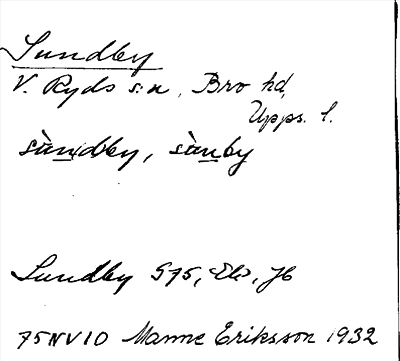 Sundby
V. Ryds sn, Bro hd,
Upps. l.
sùndby, sùnby
Sundby 575, Ek, Jb
75NV10 Manne Eriksson 1932